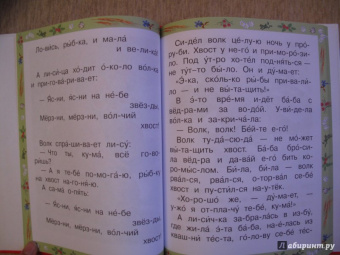 Ло-ви́сь, ры́б-ка, и ма-ла́
и ве-ли-ка́!
А ли-си́-ца хо́-дит о́-ко-ло во́л-ка
и при-го-ва́-ри-ва-ет:
— Я́с-ни, я́с-ни на не́-бе
звёз-ды,
Мёрз-ни, мёрз-ни, во́л-чий
хвост!
Волк спра́-ши-ва-ет ли-су́:
— Что ты, ку-ма́, всё го-во-
ри́шь?
— А я те-бе́ по-мо-га́-ю, ры́б-ку
на хвост на-го-ня́-ю.
А са-ма́ о-пя́ть:
— Я́с-ни, я́с-ни на не́-бе
звёз-ды,
Мёрз-ни, мёрз-ни, во́л-чий
хвост!
Си-де́л волк це́-лу-ю ночь у про́-
ру-би. Хвост у не-го́ и при-мо-ро́-зи-
ло. Под у́т-ро хо-те́л под-ня́ть-ся —
не тут-то бы́-ло. Он и ду́-ма-ет:
«Э-ка, ско́ль-ко ры́-бы при-ва-ли́-
ло — и не вы́-та-щить!»
В э́-то вре́-мя и-дёт ба́-ба с
вёд-ра-ми за во-до́й. У-ви́-де-ла
во́л-ка и за-кри-ча́-ла:
— Волк, волк! Бе́й-те е-го́!
Волк ту-да́-сю-да́ — не мо́-жет
вы́-та-щить хвост. Ба́-ба бро́-си-
ла вёд-ра и да-ва́й е-го́ бить ко-
ро-мы́с-лом. Би́-ла, би́-ла, волк
рва́л-ся, рва́л-ся, о-тор-ва́л се-бе́
хвост и пус-ти́л-ся на-у-тёк.
«Хо-ро-шо́ же, — ду́-ма-ет, —
у-ж я от-пла-чу́ те-бе́, ку-ма́!»
А ли-си́ч-ка за-бра-ла́сь в из-бу́,
где жи-ла́ э́-та ба́-ба, на-е́-лась из
кваш-ни́ те́с-та, го́-ло-ву се-бе́ те́с-
лабиринт.ру